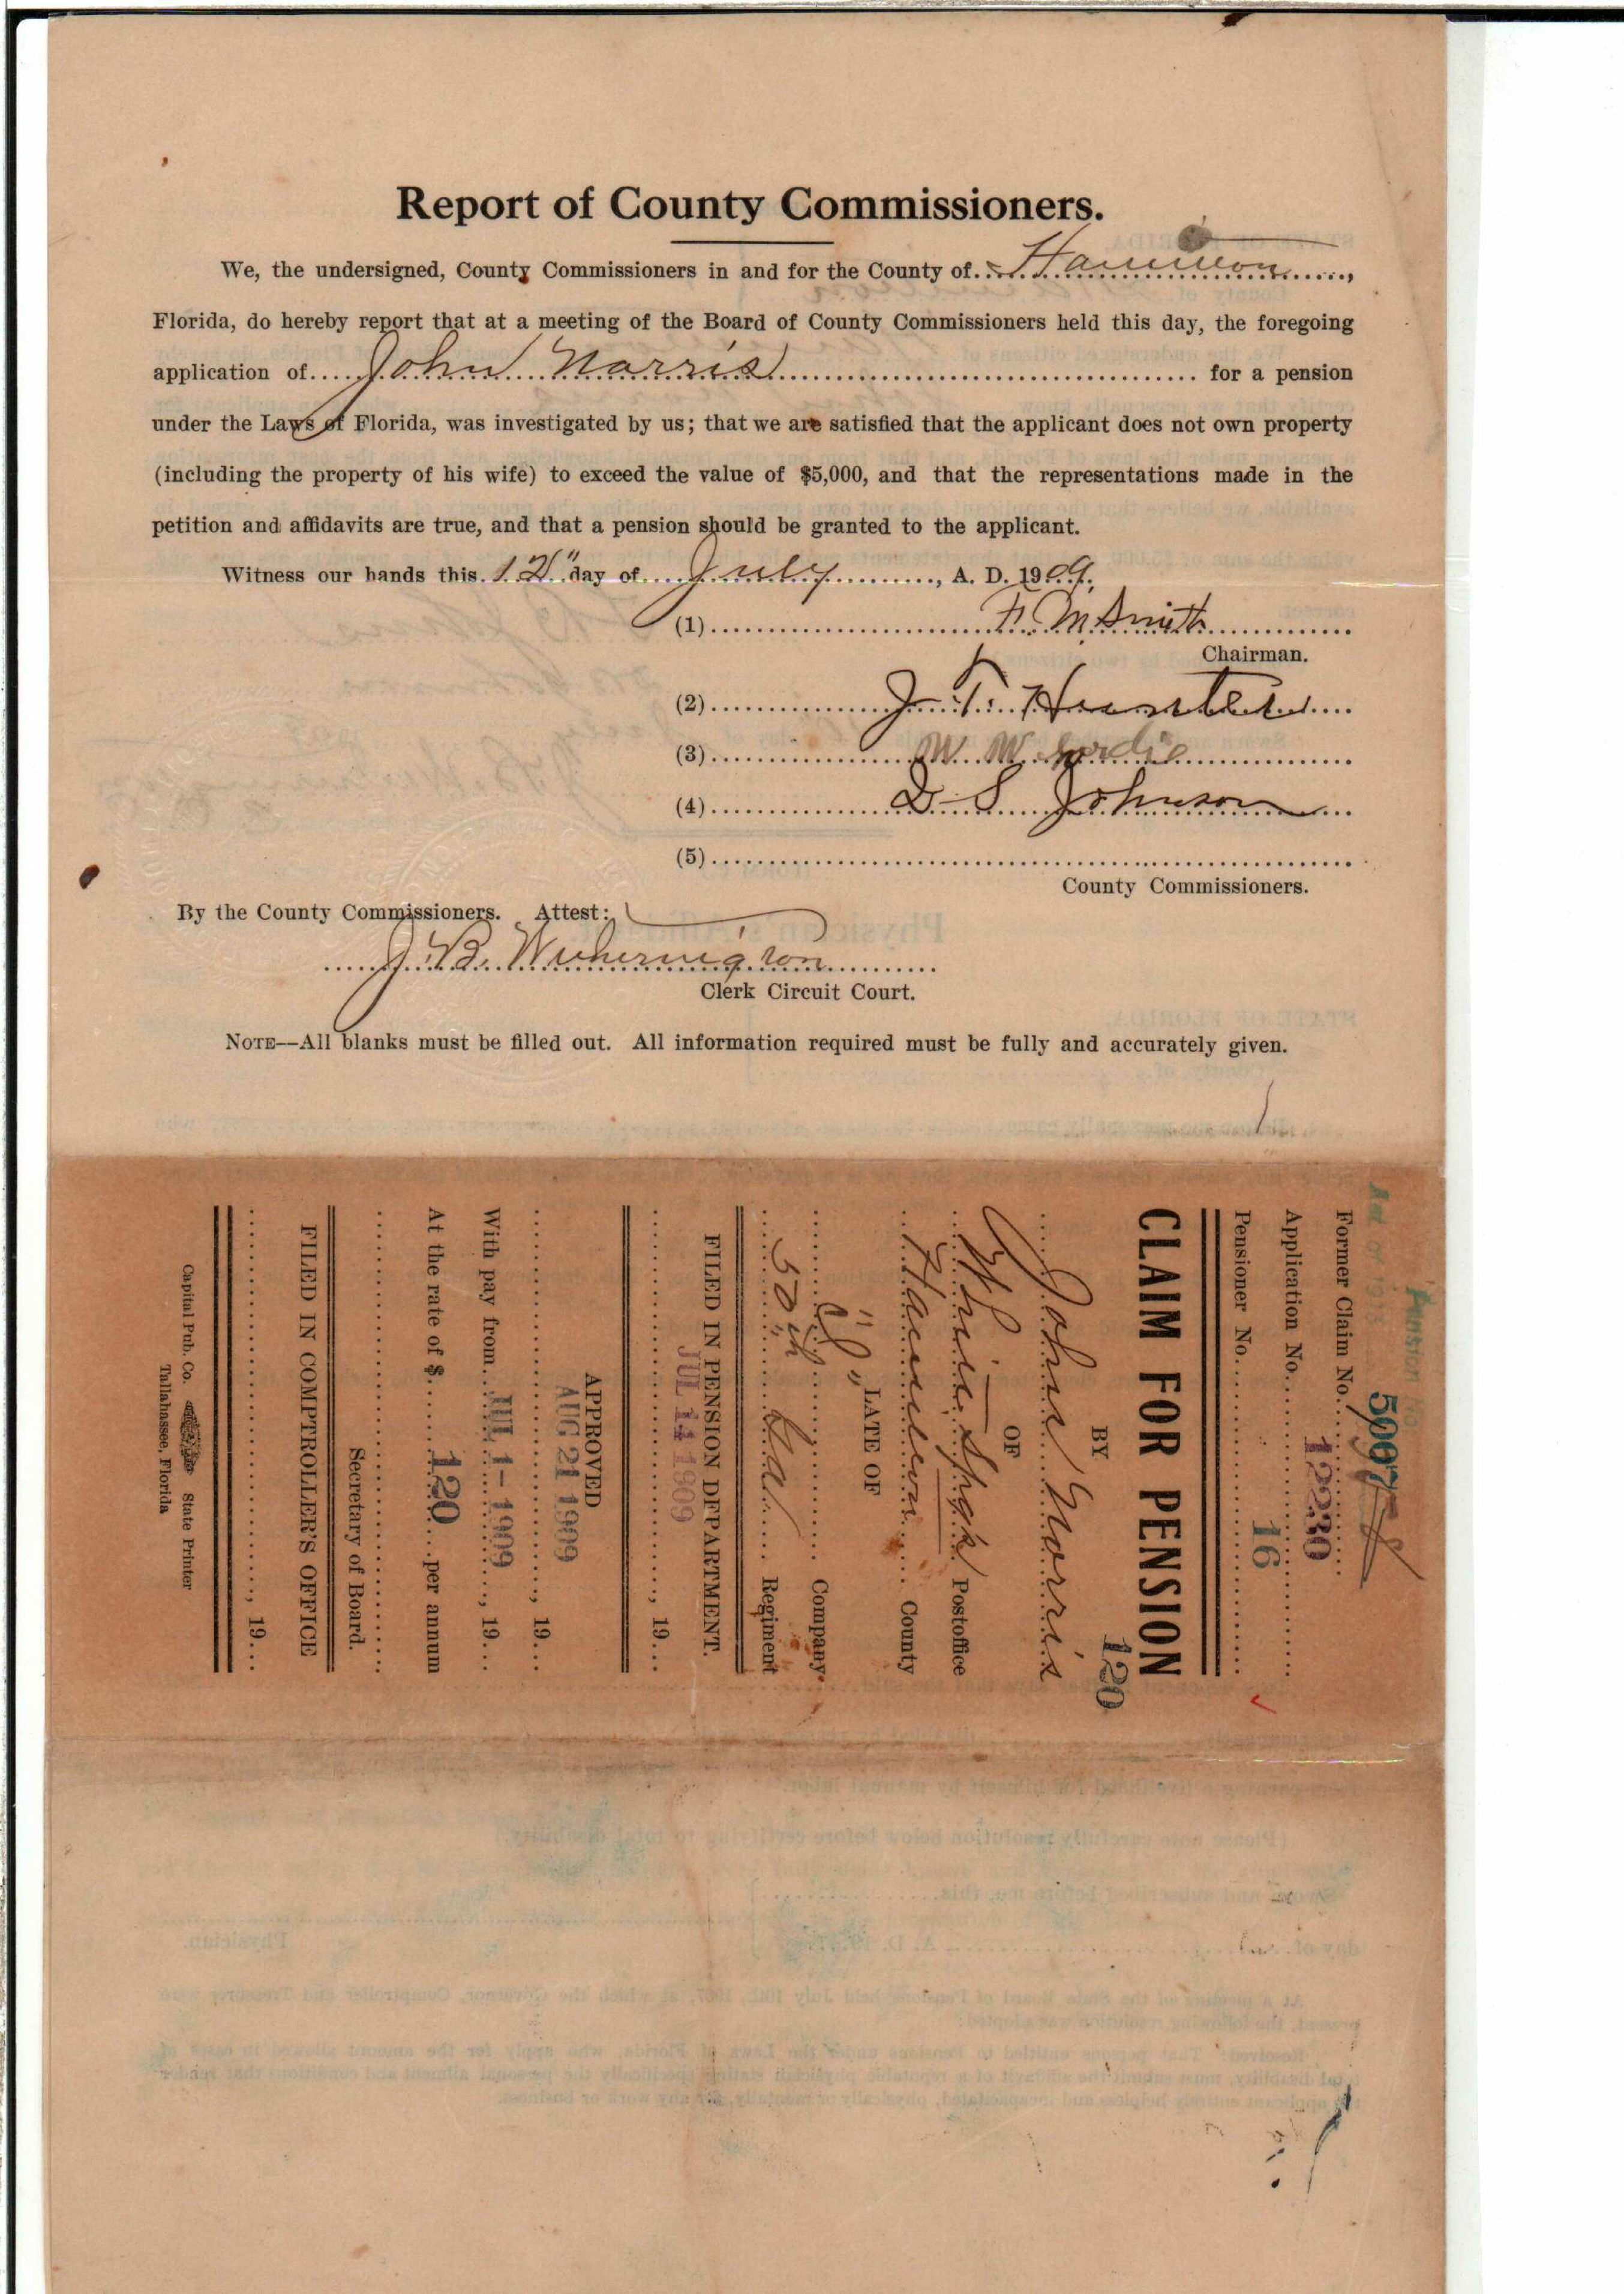 Report of County Commissioners.
We, the undersigned, County Commissioners in and for the County of Hamilton,
Florida, do hereby report that at a meeting of the Board of County Commissioners held this day, the foregoing
application of John Norris for a pension
under the Laws of Florida, was investigated by us; that we are satisfied that the applicant does not own property
(including the property of his wife) to exceed the value of $5,000, and that the representations made in the
petition and affidavits are true, and that a pension should be granted to the applicant.
Witness our hands this 12" day of July, A. D. 1909.
(1) F. M. Smith
Chairman.
(2) J. T. Hunter
(3) W. W.
(4) D S Johnson
(5)
County Commissioners.
By the County Commissioners. Attest:
J. B.
Clerk Circuit Court.
NOTE--All blanks must be filled out. All information required must be fully and accurately given.
Pension No
Act of
5007
Former Claim No.
Application No. 12230
Pensioner No. 16
CLAIM FOR PENSION
120
BY
John Norris
OF
White Spgs Postoffice
Hamilton County
LATE OF
"C" Company
50th Ga Regiment
FILED IN PENSION DEPARTMENT.
JUL 14 1909
, 19
APPROVED
AUG 21 1909
, 19
With pay from JUL 1-1909, 19
At the rate of $ 120 per annum
Secretary of Board.
FILED IN COMPTROLLER'S OFFICE
, 19
Capital Pub. Co. State Printer
Tallahassee, Florida